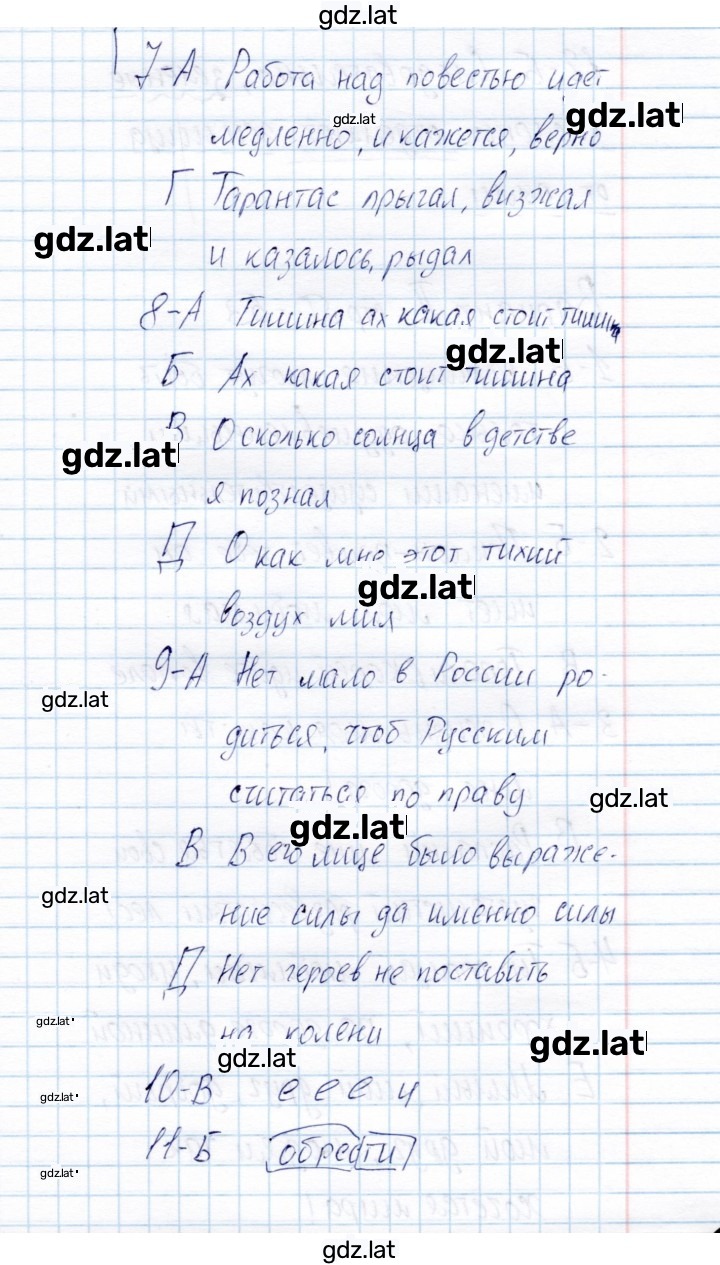 gdz.lat
7-А Работа над повестью идет
gdz.lat
gdz.lat
медленно, и кажется, верно
Г Тарантас прыгал, визжал
gdz.lat
и казалось, рыдал
8-А Тишина ах какая стоит тишина
gdz.lat
Б Ах какая стоит тишина
В О сколько солнца в детстве
gdz.lat
я познал
Д О как мно этот тихий
gdz.lat
воздух мил
9-А Нет мало в России ро-
gdz.lat
диться, чтоб Русским
считаться по праву
gdz.lat
gdz.lat
В В его лице было выраже-
gdz.lat
ние силы да именно силы
Д Нет героев не поставить
gdz.lat
на колени
gdz.lat
gdz.lat
10-В е е е и
gdz.lat
11-Б обрести
gdz.lat
gdz.lat